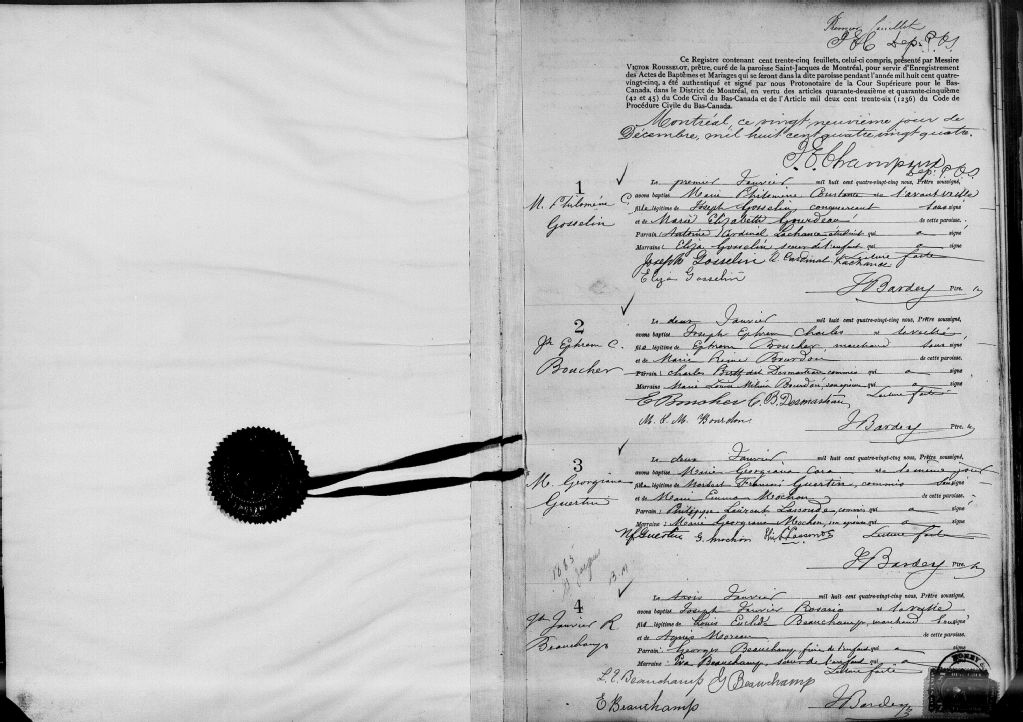 Premier feuillet
Dep. P.C.S.
Ce Registre contenant cent trente-cinq feuillets, celui-ci compris, présenté par Messire
VICTOR ROUSSELOT, prêtre, curé de la paroisse Saint-Jacques de Montréal, pour servir d'Enregistrement
des Actes de Baptêmes et Mariages qui se feront dans la dite paroisse pendant l'année mil huit cent quatre-
vingt-cinq, a été authentiqué et signé par nous Protonotaire de la Cour Supérieure pour le Bas-
Canada, dans le District de Montréal, en vertu des articles quarante-deuxième et quarante-cinquième
(42 et 45) du Code Civil du Bas-Canada et de l'Article mil deux cent trente-six (1236) du Code de
Procédure Civile du Bas-Canada.
Montréal, ce vingt neuvième jour de
Décembre, mil huit cent quatre vingt quatre.
Dep. P.C.S.
1
M. Philomène C.
Gosselin
Le premier Janvier mil huit cent quatre-vingt-cinq nous, Prêtre soussigné,
avons baptisé Marie Philomène Constance née l'avant veille
fille légitime de Joseph Gosselin, conquerant soussigné
et de Marie Elizabeth Gourdeau de cette paroisse.
Parrain : Antoine Cardinal Lachance étudiant qui a signé
Marraine : Eliza Gosselin soeur de l'enfant qui a signé
Joseph Gosselin A. Cardinal Lachance Lecture faite
Eliza Gosselin
J Bardey Ptre.
2
Jh Ephrem C.
Boucher
Le deux Janvier mil huit cent quatre-vingt-cinq nous, Prêtre soussigné,
avons baptisé Joseph Ephrem Charles né la veille
fils légitime de Ephrem Boucher marchand soussigné
et de Marie Reine Bourdon de cette paroisse.
Parrain : Charles dit Desmarteau commis qui a signé
Marraine Marie Louise Mélina Bourdon, qui a signé
E Boucher C. B. Desmarteau Lecture faite
M. L. M. Bourdon
J Bardey Ptre.
3
M. Georgiana
Guertin
Le deux Janvier mil huit cent quatre-vingt-cinq nous, Prêtre soussigné,
avons baptisé Marie Georgiana Cora née le même jour
fille légitime de Norbert François Guertin, commis soussigné
et de Marie Emma Mochon de cette paroisse.
Parrain : Philippe Laurent Lassonde, commis qui a signé
Marraine : Marie Georgiana Mochon, son épouse qui a signé
Nf Guertin G. Mochon Lassonde Lecture faite
J Bardey Ptre.
1885
St Jacques
B. M
4
Jh Janvier R
Beauchamp
Le trois Janvier mil huit cent quatre-vingt-cinq nous, Prêtre soussigné,
avons baptisé Joseph Janvier Rosario né la veille
fils légitime de Louis Euclide Beauchamp, marchand soussigné
et de Agnès Moreau de cette paroisse.
Parrain : Georges Beauchamp, frère de l'enfant qui a signé
Marraine : Eva Beauchamp, soeur de l'enfant qui a signé
L. E. Beauchamp G Beauchamp Lecture faite
E Beauchamp
J Bardey